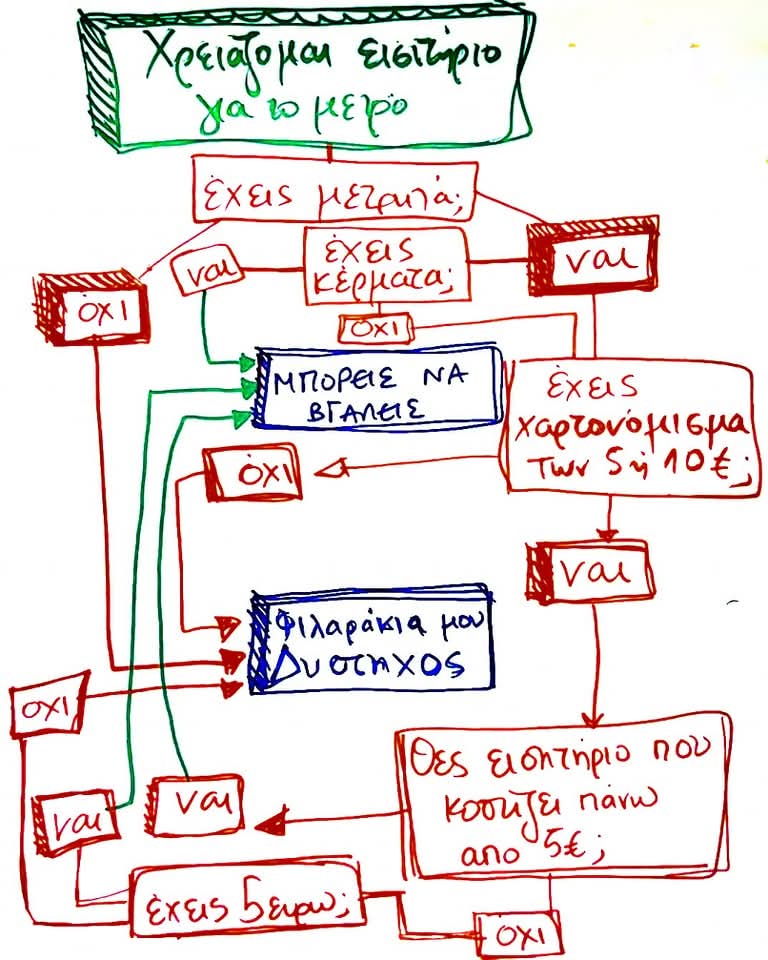 Χρειάζομαι εισιτήριο
για το μετρό
έχεις μετρητά;
έχεις
κέρματα;
ναι
ναι
όχι
όχι
ΜΠΟΡΕΙΣ ΝΑ
ΒΓΑΛΕΙΣ
έχεις
χαρτονόμισμα
των 5 ή 10€;
όχι
ναι
Φιλαράκια μου
Δυστηχος
όχι
Θες εισητήριο που
κοστίζει πάνω
απο 5€;
ναι
ναι
έχεις 5 ευρω;
όχι